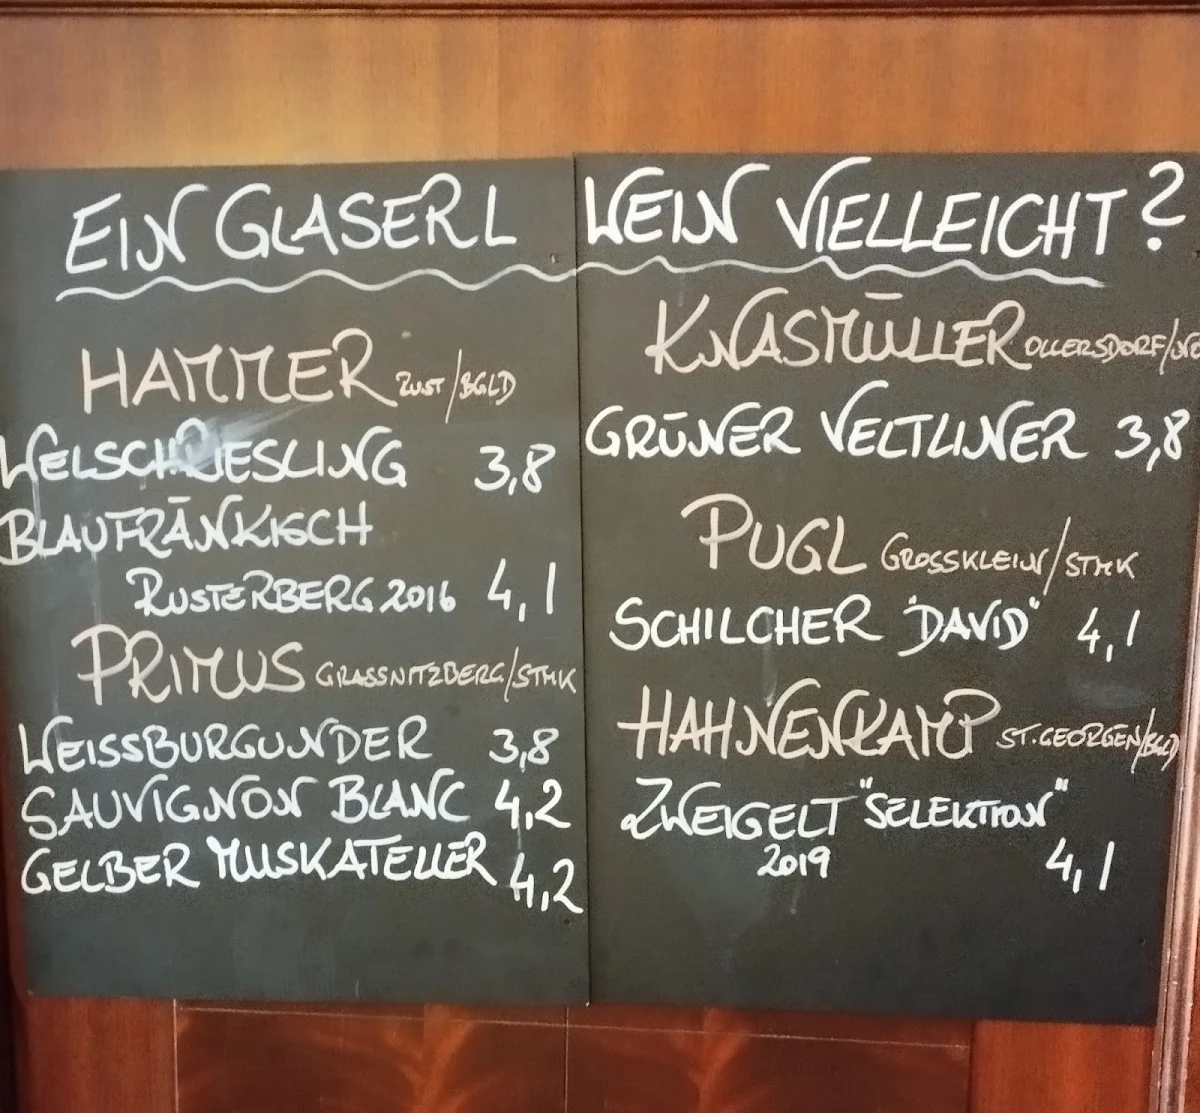 EIN GLASERL WEIN VIELLEICHT?
HAMMER RUST/BGLD
WELSCHRIESLING 3,8
BLAUFRÄNKISCH
RUSTERBERG 2016 4,1
PRIMUS GRASSNITZBERG/STMK
WEISSBURGUNDER 3,8
SAUVIGNON BLANC 4,2
GELBER MUSKATELLER 4,2
KNASMÜLLER OLLERSDORF/NÖ
GRÜNER VELTLINER 3,8
PUGL GROSSKLEIN/STMK
SCHILCHER "DAVID" 4,1
HAHNENKAMP ST.GEORGEN/BGLD
ZWEIGELT "SELEKTION"
2019 4,1